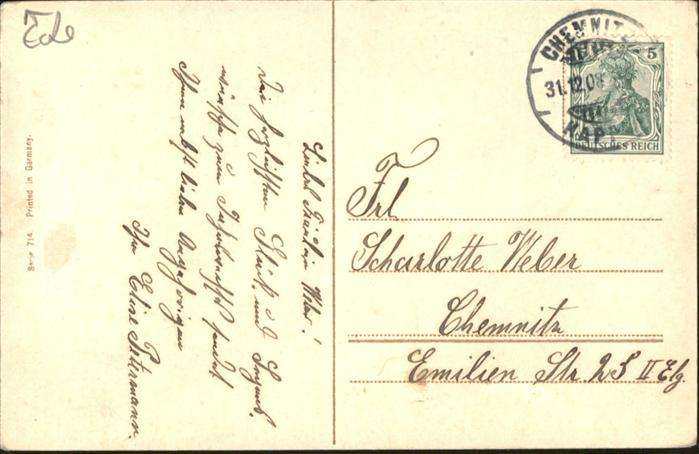 Ede
Serie 714. Printed in Germany.
Liebes Fräulein Weber!
Die herzlichsten Glück und Segens-
wünsche zum Jahreswechsel sendet
Ihnen nebst lieben Angehörigen
Ihre Elise Petermann.
CHEMNITZ
31.12.09
KAPP
5
DEUTSCHES REICH
Frl
Scharlotte Weber
Chemnitz
Emilien Str. 25 II Etg.